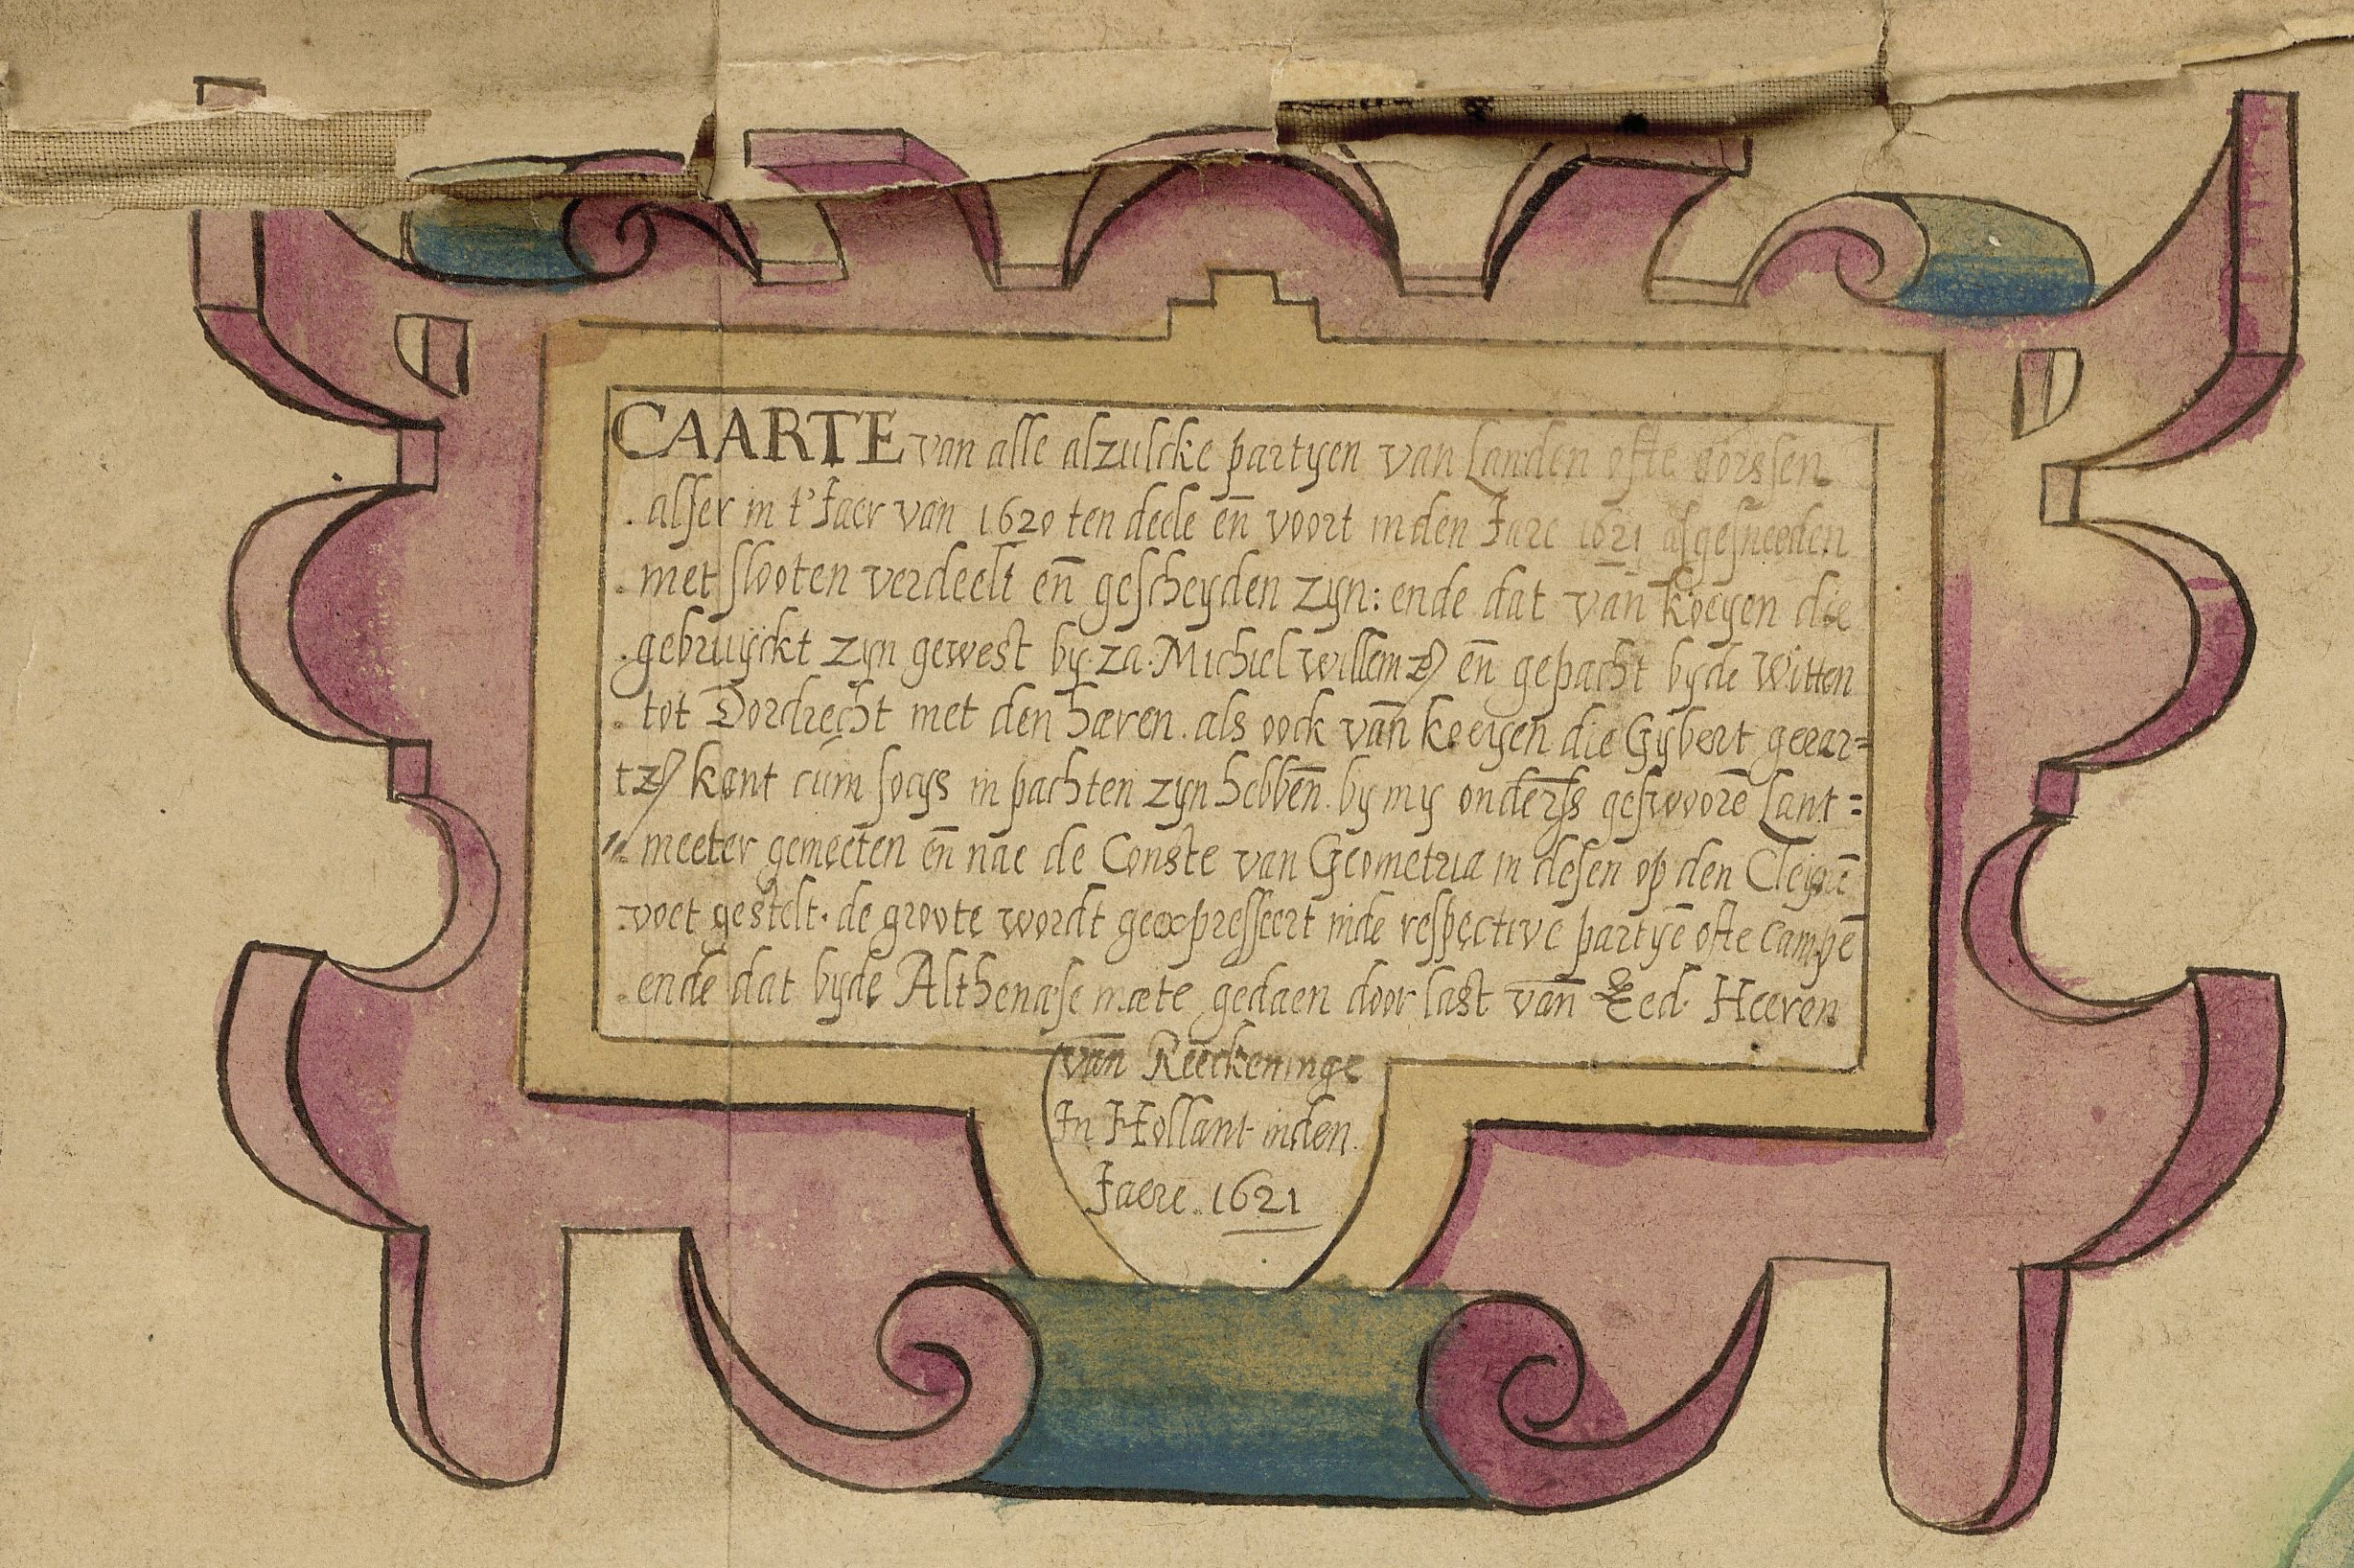 CAARTE van alle alzulcke partyen van Landen ofte gorssen
alser in t'Jaer van 1620 ten dede en̄ voort inden Jare 1621 afgesneeden
met slooten verdeelt en̄ gescheyden zyn: ende dat van̄ koeyen die
gebruyckt zyn gewest by za. Michiel willemz en̄ gepacht byde Witten
tot Dordrecht met den haeren. als oock van̄ koeyen die Gybert gerar=
tz kant cum socys in pachten zyn hebben̄. by my onderss geswoorē Lant=
meeter gemeeten en̄ nae de Conste van Geometria in desen op den Cleynē
voet gestelt. de groote wordt geexpresseert inde respective partyē ofte Campē
ende dat byde Althenaese maete gedaen door last van̄ Eed. Heeren
van̄ Reeckeninge
In Hollant inden.
Jaere. 1621